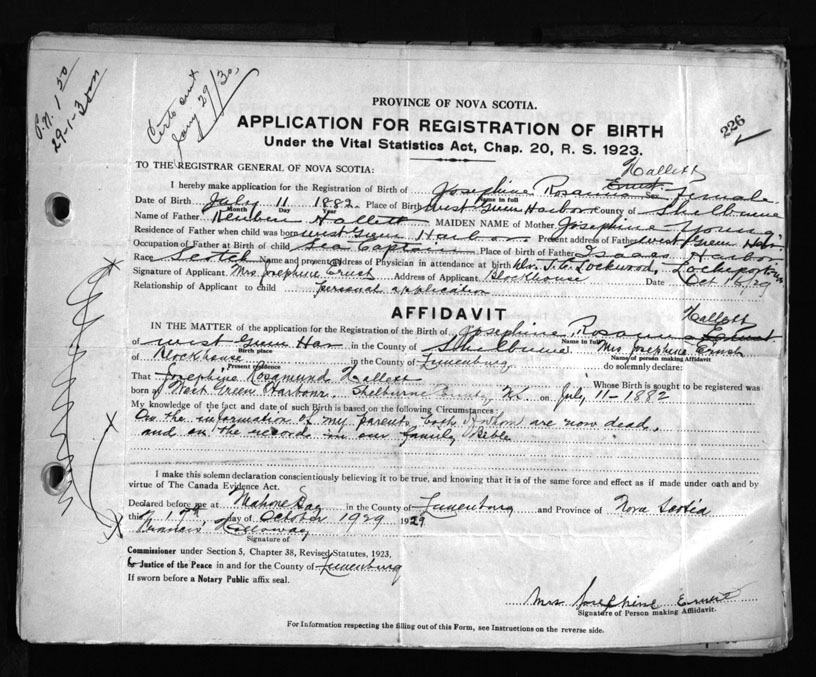 P.N. 1 30
29-1-30
Certo sent
Jany 29/30,
PROVINCE OF NOVA SCOTIA.
226
APPLICATION FOR REGISTRATION OF BIRTH
Under the Vital Statistics Act, Chap. 20, R. S. 1923.
TO THE REGISTRAR GENERAL OF NOVA SCOTIA:
Hallett
I hereby make application for the Registration of Birth of Josephine Ernst female
Name in full Sex
Date of Birth July 11 1882 Place of Birth West Green Harbor county of Shelburne
Month Day Year
Name of Father Reuben Hallett MAIDEN NAME of Mother Josephine Young
Residence of Father when child was born West Green Harbor Present address of Father West Green Har
Occupation of Father at Birth of child Sea Captain Place of birth of Father Isaacs Harbor
Race Scotch Name and present Address of Physician in attendance at birth Lockwood, Lockeport
Signature of Applicant Mrs Josephine Ernst Address of Applicant Blockhouse Date Oct 16/29
Relationship of Applicant to child personal application
AFFIDAVIT
Hallett
IN THE MATTER of the application for the Registration of the Birth of Josephine Ernst
Name in full
of West Green Har in the County of Shelburne Mrs Josephine Ernst
Birth place Name of person making Affidavit
of Blockhouse in the County of Lunenburg do solemnly declare:
Present residence
That Josephine Rosamund Hallett Whose Birth is sought to be registered was
born at West Green Harbour, Shelburne County, N.S. on July 11-1882
My knowledge of the fact and date of such Birth is based on the following Circumstances:
On the information of my parents both of whom are now dead,
and on the records in our family Bible
I make this solemn declaration conscientiously believing it to be true, and knowing that it is of the same force and effect as if made under oath and by
virtue of The Canada Evidence Act.
Declared before me at Mahone Bay in the County of Lunenburg and Province of Nova Scotia
this 19th day of October 1929 1929
Francis Holloway
Signature of
Commissioner under Section 5, Chapter 38, Revised Statutes, 1923.
Justice of the Peace in and for the County of Lunenburg
If sworn before a Notary Public affix seal.
Mrs Josephine Ernst
Signature of Person making Affidavit.
For Information respecting the filling out of this Form, see Instructions on the reverse side.